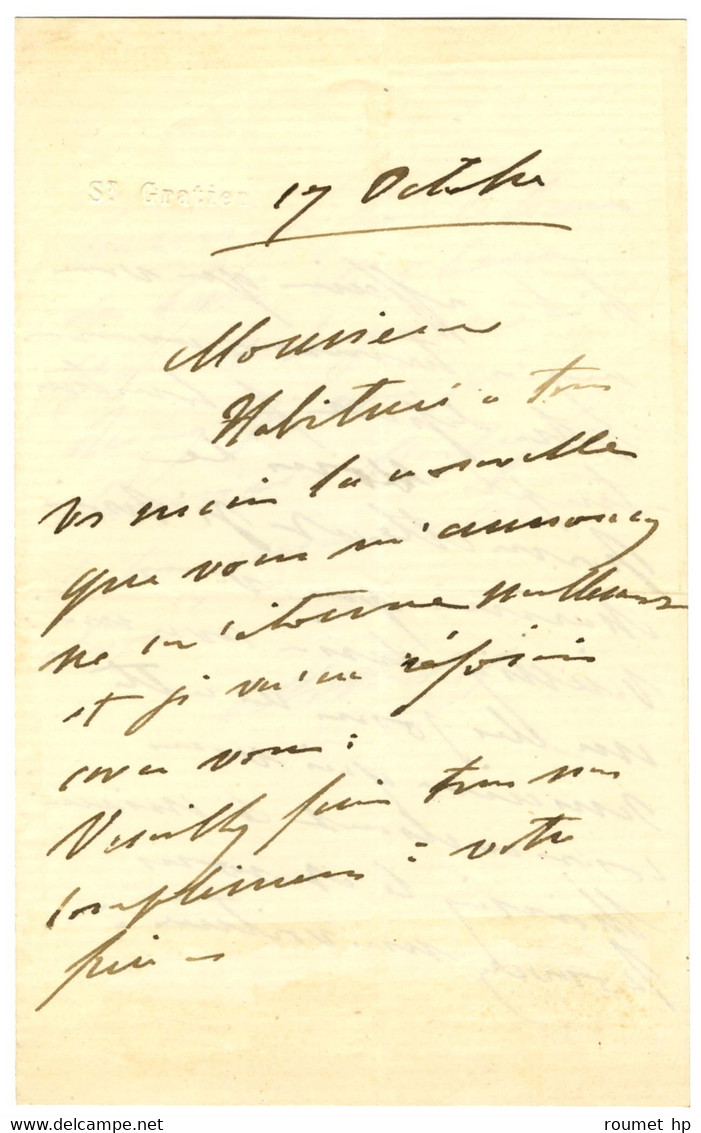 St Gratien
17 Octobre
Monsieur
Habitué a tous
la nouvelle
que vous m'annoncez
ne m'étonne nullement
et je m'en réjouis
avec vous :
Veuillez faire tous mes
complimens a votre
www.delcampe.net
roumet hp